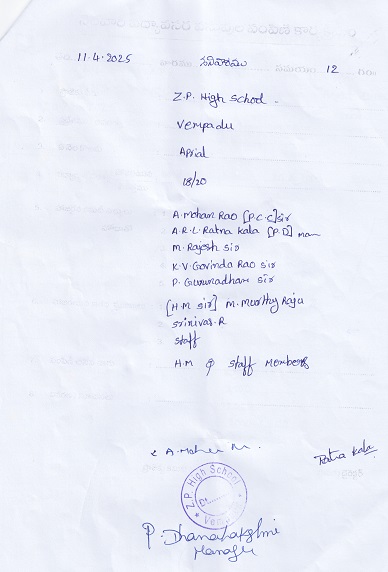 11.4.2025 శనివారము 12
Z.P. High School.
Vempadu
Aprial
18/20
A. Mohan Rao [P.C.C] sir
A.R.L. Ratna kala [P.D] mam
M. Rajesh sir
K.V. Govinda Rao sir
P. Gurunadham sir
[H.M sir] M. Murthy Raju
srinivas.R
staff
H.M & staff Members
A. Mohan R.
Ratna kala
Z.P. High School
Dt.
P. Dhanalakshmi
Manager